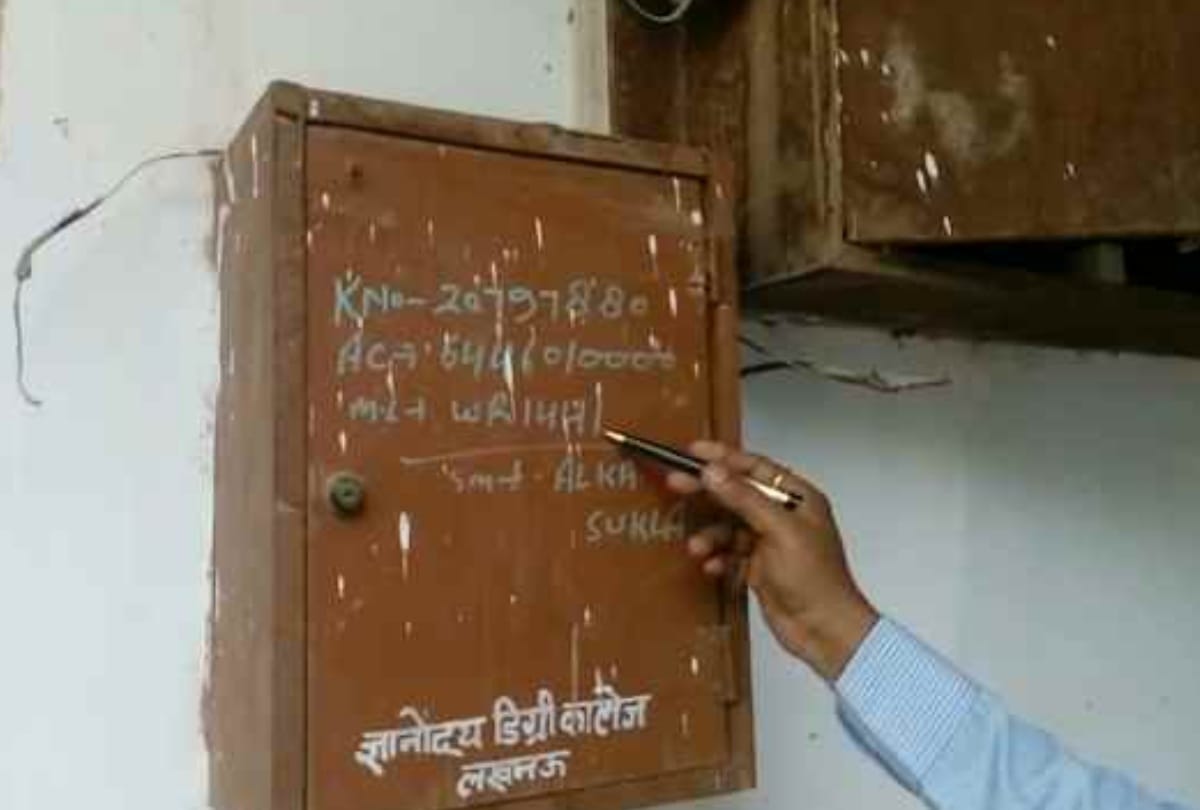 KNo- 20797880
AC→ 544601000
M.L→ WR1441
Smt. ALKA
SUKLA
ज्ञानोंदय डिग्री कालेज
लखनऊ